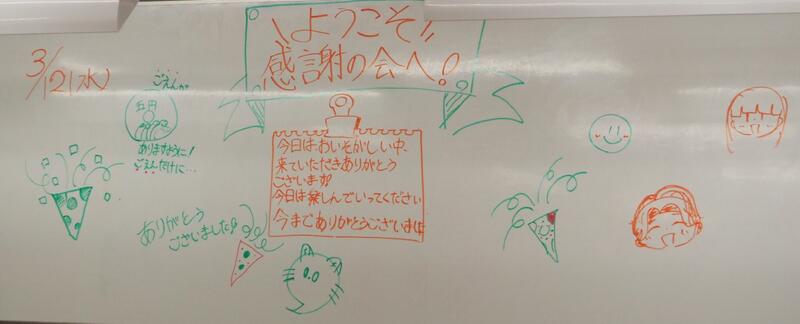 3/12(水)
ようこそ
感謝の会へ!
ごえんが
五円
ありますように!
ごえんだけに…
今日はおいそがしい中、
来ていただきありがとう
ございます!
今日は楽しんでいってください
今までありがとうございました
ありがとう
ございました!